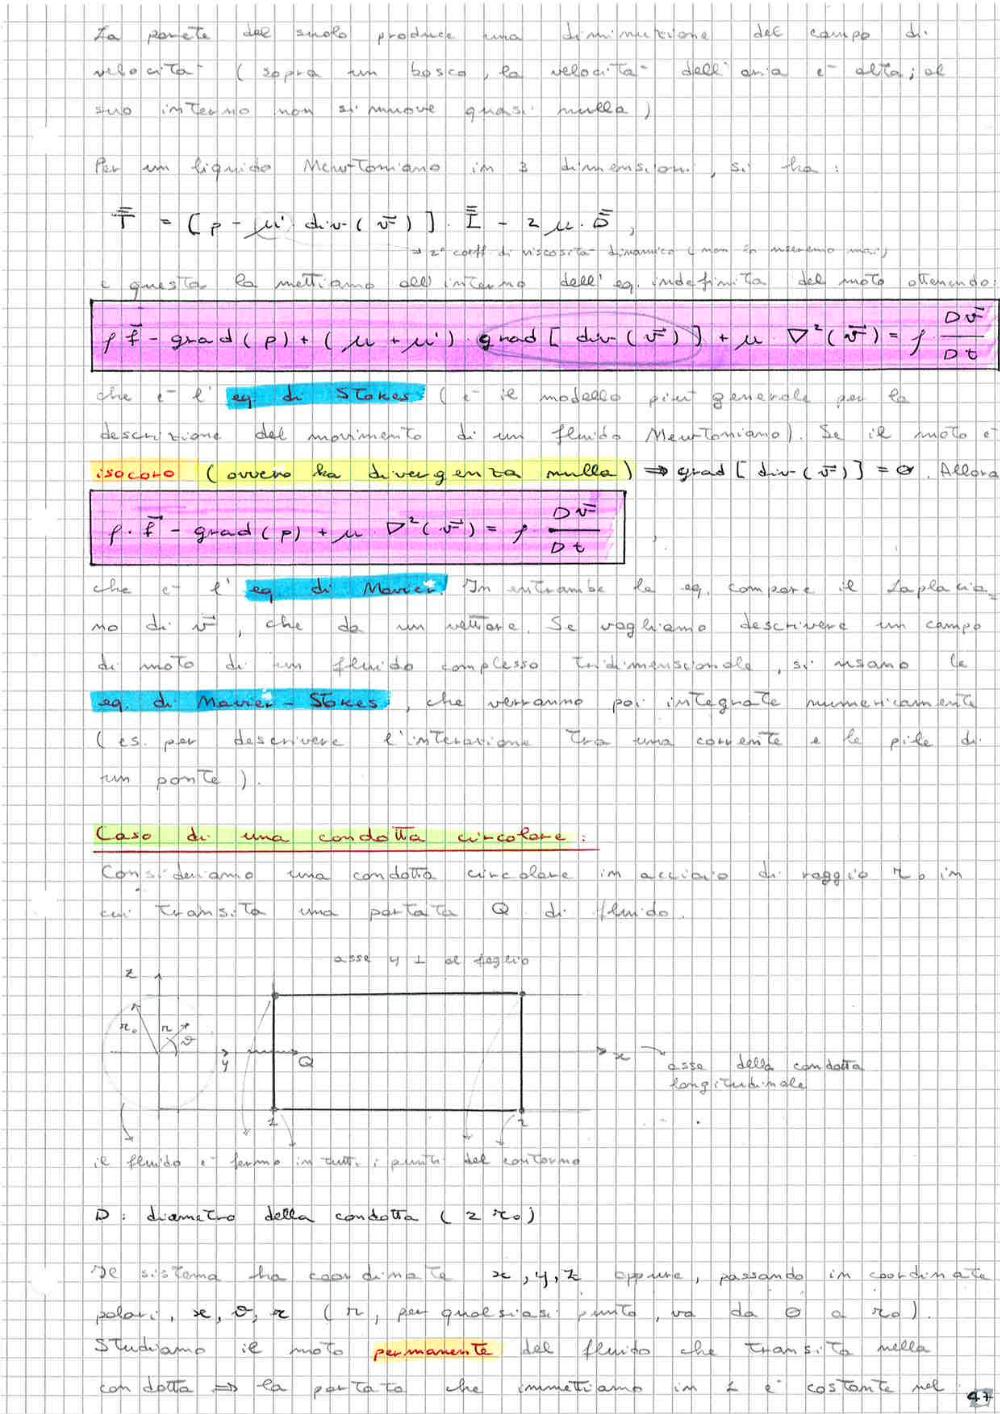 La parete del suolo produce una diminuzione del campo di
velocità (sopra un bosco, la velocità dell'aria è alta; al
suo interno non si muove quasi nulla)
Per un liquido Newtoniano in 3 dimensioni, si ha:
T̿ = [p - μ' div(v̄)] · I̿ - 2 μ · D̿,
→ 2° coeff. di viscosità dinamico (non la useremo mai)
e questa la mettiamo all'interno dell'eq. indefinita del moto ottenendo:
ρ f⃗ - grad(p) + (μ + μ') grad[div(v̄)] + μ ∇²(v̄) = ρ Dv̄/Dt
che è l'eq. di Stokes (è il modello più generale per la
descrizione del movimento di un fluido Newtoniano). Se il moto è
isocoro (ovvero ha divergenza nulla) ⇒ grad[div(v̄)] = 0. Allora
ρ · f⃗ - grad(p) + μ ∇²(v̄) = ρ Dv̄/Dt
che è l'eq. di Navier. In entrambe le eq. compare il Laplacia-
no di v̄, che dà un vettore. Se vogliamo descrivere un campo
di moto di un fluido complesso tridimensionale, si usano le
eq. di Navier-Stokes, che verranno poi integrate numericamente
(es. per descrivere l'interazione tra una corrente e le pile di
un ponte).
Caso di una condotta circolare:
Consideriamo una condotta circolare in acciaio di raggio r₀ in
cui transita una portata Q di fluido.
asse y ⊥ al foglio
z
r₀ r ϑ
y Q x → asse della condotta
longitudinale
1 2
il fluido è fermo in tutti i punti del contorno
D: diametro della condotta (2 r₀)
Il sistema ha coordinate x, y, z oppure, passando in coordinate
polari, x, ϑ, r (r, per qualsiasi punto, va da 0 a r₀).
Studiamo il moto permanente del fluido che transita nella
condotta ⇒ la portata che immettiamo in 1 è costante nel
47